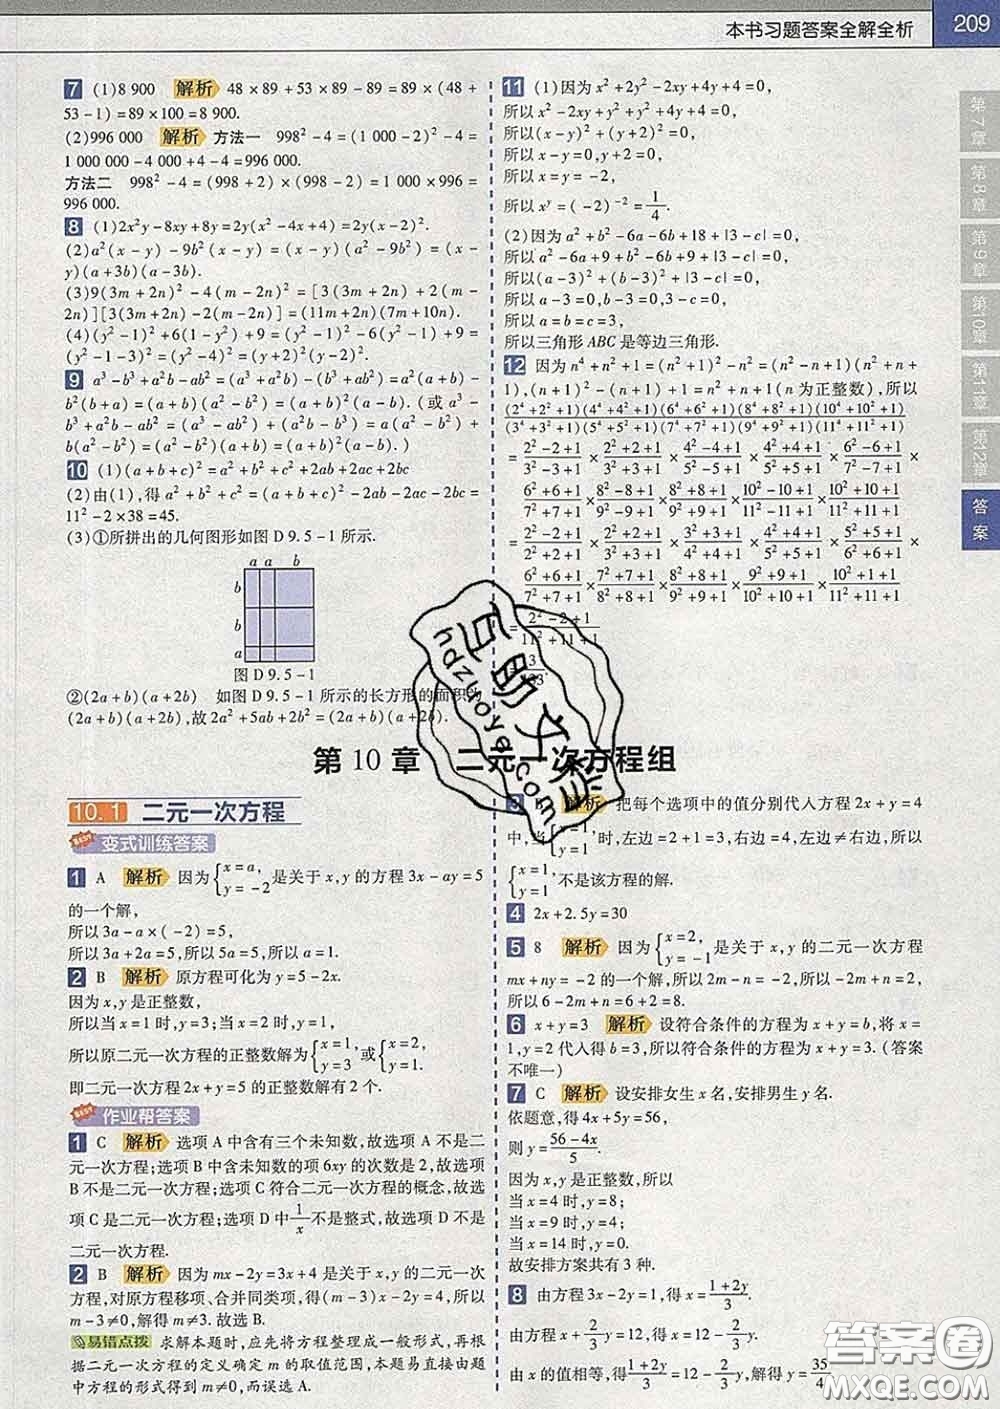 本书习题答案全解全析
209
7 (1)8 900 解析 48×89+53×89-89=89×(48+
53-1)=89×100=8 900.
(2)996 000 解析 方法一 998²-4=(1 000-2)²-4=
1 000 000-4 000+4-4=996 000.
方法二 998²-4=(998+2)×(998-2)=1 000×996=
996 000.
8 (1)2x²y-8xy+8y=2y(x²-4x+4)=2y(x-2)².
(2)a²(x-y)-9b²(x-y)=(x-y)(a²-9b²)=(x-
y)(a+3b)(a-3b).
(3)9(3m+2n)²-4(m-2n)²=[3(3m+2n)+2(m-
2n)][3(3m+2n)-2(m-2n)]=(11m+2n)(7m+10n).
(4)(y²-1)²+6(1-y²)+9=(y²-1)²-6(y²-1)+9=
(y²-1-3)²=(y²-4)²=(y+2)²(y-2)².
9 a³-b³+a²b-ab²=(a³+a²b)-(b³+ab²)=a²(a+b)-
b²(b+a)=(a+b)(a²-b²)=(a+b)²(a-b).(或a³-
b³+a²b-ab²=(a³-ab²)+(a²b-b³)=a(a²-b²)+
b(a²-b²)=(a²-b²)(a+b)=(a+b)²(a-b).)
10 (1)(a+b+c)²=a²+b²+c²+2ab+2ac+2bc
(2)由(1),得a²+b²+c²=(a+b+c)²-2ab-2ac-2bc=
11²-2×38=45.
(3)①所拼出的几何图形如图D9.5-1所示.
a a b
b
b
a
图D9.5-1
②(2a+b)(a+2b) 如图D9.5-1所示的长方形的面积为
(2a+b)(a+2b),故2a²+5ab+2b²=(2a+b)(a+2b).
11 (1)因为x²+2y²-2xy+4y+4=0,
所以x²-2xy+y²+y²+4y+4=0,
所以(x-y)²+(y+2)²=0,
所以x-y=0,y+2=0,
所以x=y=-2,
所以xʸ=(-2)⁻²=1/4.
(2)因为a²+b²-6a-6b+18+|3-c|=0,
所以a²-6a+9+b²-6b+9+|3-c|=0,
所以(a-3)²+(b-3)²+|3-c|=0,
所以a-3=0,b-3=0,3-c=0,
所以a=b=c=3,
所以三角形ABC是等边三角形.
12 因为n⁴+n²+1=(n²+1)²-n²=(n²+1-n)(n²+n+
1),(n+1)²-(n+1)+1=n²+n+1(n为正整数),所以
(2⁴+2²+1)(4⁴+4²+1)(6⁴+6²+1)(8⁴+8²+1)(10⁴+10²+1)/(3⁴+3²+1)(5⁴+5²+1)(7⁴+7²+1)(9⁴+9²+1)(11⁴+11²+1)
=(2²-2+1)/(3²-3+1)×(2²+2+1)/(3²+3+1)×(4²-4+1)/(5²-5+1)×(4²+4+1)/(5²+5+1)×(6²-6+1)/(7²-7+1)×
(6²+6+1)/(7²+7+1)×(8²-8+1)/(9²-9+1)×(8²+8+1)/(9²+9+1)×(10²-10+1)/(11²-11+1)×(10²+10+1)/(11²+11+1)
=(2²-2+1)/(3²+3+1)×(2²+2+1)/(3²-3+1)×(3²+3+1)/(5²+5+1)×(4²+4+1)/(5²+5+1)×(5²+5+1)/(7²-7+1)×
(6²+6+1)/(7²+7+1)×(7²+7+1)/(9²-9+1)×(8²+8+1)/(9²+9+1)×(9²+9+1)/(11²-11+1)×(10²+10+1)/(11²+11+1)
=(2²-2+1)/(11²+11+1)
=3/133.
第10章 二元一次方程组
10.1 二元一次方程
变式训练答案
1 A 解析 因为{x=a,y=-2是关于x,y的方程3x-ay=5
的一个解,
所以3a-a×(-2)=5,
所以3a+2a=5,所以5a=5,所以a=1.
2 B 解析 原方程可化为y=5-2x.
因为x,y是正整数,
所以当x=1时,y=3;当x=2时,y=1,
所以原二元一次方程的正整数解为{x=1,y=3或{x=2,y=1,
即二元一次方程2x+y=5的正整数解有2个.
作业帮答案
1 C 解析 选项A中含有三个未知数,故选项A不是二
元一次方程;选项B中含未知数的项6xy的次数是2,故选项
B不是二元一次方程;选项C符合二元一次方程的概念,故选
项C是二元一次方程;选项D中1/x不是整式,故选项D不是
二元一次方程.
2 B 解析 因为mx-2y=3x+4是关于x,y的二元一次
方程,对原方程移项、合并同类项,得(m-3)x-2y=4,所以
m-3≠0,解得m≠3.故选B.
易错点拨 求解本题时,应先将方程整理成一般形式,再根
据二元一次方程的定义确定m的取值范围,本题易直接由题
中方程的形式得到m≠0,而误选A.
3 解析 把每个选项中的值分别代入方程2x+y=4
中,当{x=1,y=1时,左边=2+1=3,右边=4,左边≠右边,所以
{x=1,y=1不是该方程的解.
4 2x+2.5y=30
5 8 解析 因为{x=2,y=-1是关于x,y的二元一次方程
mx+ny=-2的一个解,所以2m-n=-2,所以-2m+n=2,
所以6-2m+n=6+2=8.
6 x+y=3 解析 设符合条件的方程为x+y=b,将x=
1,y=2代入得b=3,所以符合条件的方程为x+y=3.(答案
不唯一)
7 C 解析 设安排女生x名,安排男生y名.
依题意,得4x+5y=56,
则y=(56-4x)/5.
因为x,y是正整数,所以
当x=4时,y=8;
当x=9时,y=4;
当x=14时,y=0.
故安排方案共有3种.
8 由方程3x-2y=1,得x=(1+2y)/3.
由方程x+2/3y=12,得x=12-2/3y.
由x的值相等,得(1+2y)/3=12-2/3y,解得y=35/4
第7章
第8章
第9章
第10章
第11章
第12章
答案
百助文学
hdzhoyecomu
答案圈
MXQE.COM